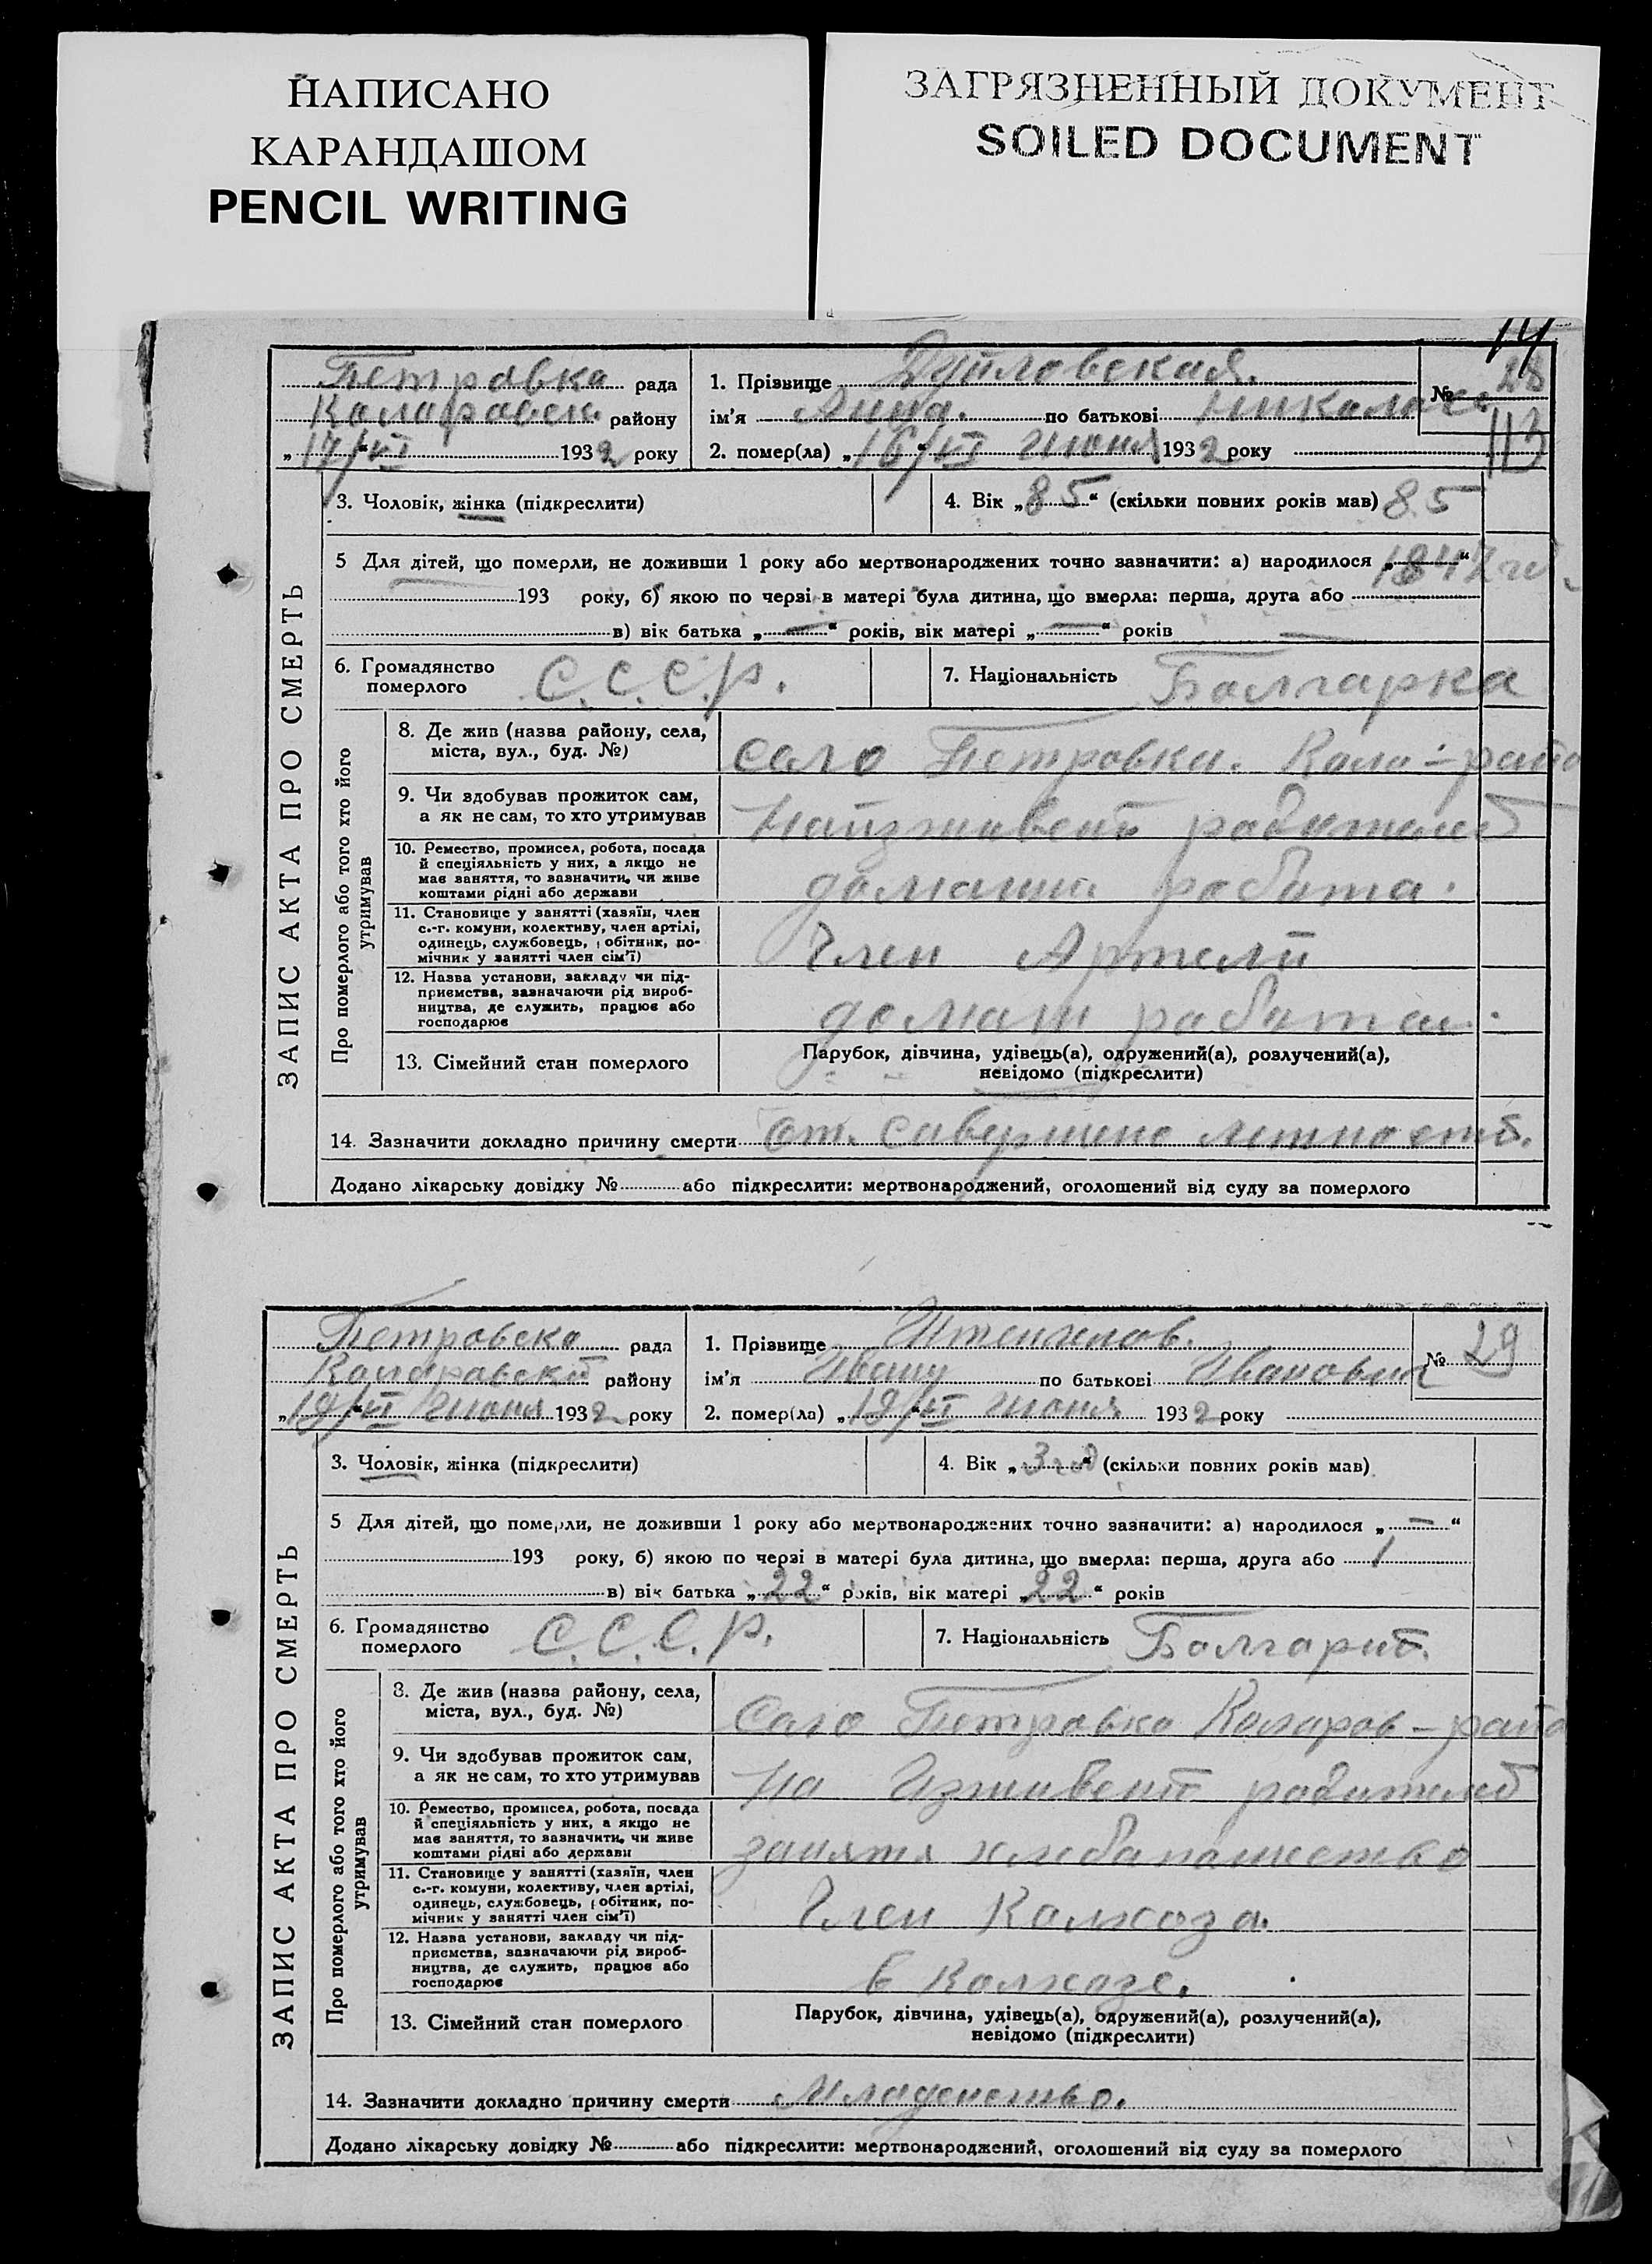 НАПИСАНО
КАРАНДАШОМ
PENCIL WRITING
ЗАГРЯЗНЕННЫЙ ДОКУМЕНТ
SOILED DOCUMENT
14
ЗАПИС АКТА ПРО СМЕРТЬ
Петровка рада
Коларовск. району
„17/VI“ 1932 року
1. Прізвище
ім'я Анна. по батькові Николаев.
2. помер(ла) „16/VI“ Июня 1932 року
№ 28
113
3. Чоловік, жінка (підкреслити)
4. Вік „85“ (скільки повних років мав) 85
5 Для дітей, що померли, не доживши 1 року або мертвонароджених точно зазначити: а) народилося „1847“
193 року, б) якою по черзі в матері була дитина, що вмерла: перша, друга або
в) вік батька „—“ років, вік матері „—“ років
6. Громадянство
померлого С.С.С.Р.
7. Національність Болгарка
Про померлого або того хто його
утримував
8. Де жив (назва району, села,
міста, вул., буд. №)
село Петровка. Кола-райо
9. Чи здобував прожиток сам,
а як не сам, то хто утримував
10. Ремество, промисел, робота, посада
й спеціяльність у них, а якщо не
має заняття, то зазначити, чи живе
коштами рідні або держави
домашн. робота.
11. Становище у занятті (хазяїн, член
с.-г. комуни, колективу, член артілі,
одинець, службовець, робітник, по-
мічник у занятті член сім'ї)
Член Артели
12. Назва установи, закладу чи під-
приємства, зазначаючи рід вироб-
ництва, де служить, працює або
господарює
домаш работа
13. Сімейний стан померлого
Парубок, дівчина, удівець(а), одружений(а), розлучений(а),
невідомо (підкреслити)
14. Зазначити докладно причину смерти От. савершено летность.
Додано лікарську довідку № або підкреслити: мертвонароджений, оголошений від суду за померлого
ЗАПИС АКТА ПРО СМЕРТЬ
Петровско рада
Коларовский району
„19/VI“ Июня 1932 року
1. Прізвище
ім'я Ивану по батькові Иванович
2. помер(ла) „19/VI“ Июня 1932 року
№ 29
3. Чоловік, жінка (підкреслити)
4. Вік „3 год“ (скільки повних років мав)
5 Для дітей, що померли, не доживши 1 року або мертвонароджених точно зазначити: а) народилося „—“
193 року, б) якою по черзі в матері була дитина, що вмерла: перша, друга або 1
в) вік батька „22“ років, вік матері „22“ років
6. Громадянство
померлого С.С.С.Р.
7. Національність Болгарин.
Про померлого або того хто його
утримував
8. Де жив (назва району, села,
міста, вул., буд. №)
Село Петровка Коларов-райо
9. Чи здобував прожиток сам,
а як не сам, то хто утримував
На Изживент родителей
10. Ремество, промисел, робота, посада
й спеціяльність у них, а якщо не
має заняття, то зазначити, чи живе
коштами рідні або держави
занятя хлебапашество
11. Становище у занятті (хазяїн, член
с.-г. комуни, колективу, член артілі,
одинець, службовець, робітник, по-
мічник у занятті член сім'ї)
Член Колхоза.
12. Назва установи, закладу чи під-
приємства, зазначаючи рід вироб-
ництва, де служить, працює або
господарює
в Колхозе.
13. Сімейний стан померлого
Парубок, дівчина, удівець(а), одружений(а), розлучений(а),
невідомо (підкреслити)
14. Зазначити докладно причину смерти Младенство.
Додано лікарську довідку № або підкреслити: мертвонароджений, оголошений від суду за померлого